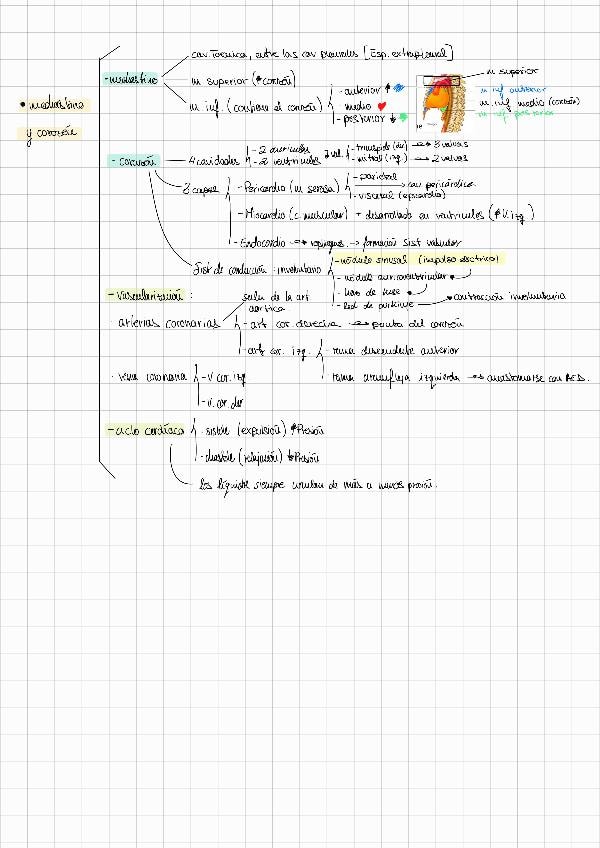 • mediastino y corazón
- mediastino
cav. Torácica, entre las cav pleurales [Esp. extrapleural]
m superior (↑ corazón)
m inf. (contiene el corazón)
- anterior ↑
- medio
- posterior ↓
m superior
m inf anterior
m. inf medio (corazón)
m inf posterior
- corazón
4 cavidades
- 2 aurículas
- 2 ventrículos
- tricúspide (der) → 3 valvas
- mitral (izq.) → 2 valvas
3 capas
- Pericardio (m serosa)
- parietal
cav pericárdica
- visceral (epicardio)
- Miocardio (c. muscular) + desarrollado en ventrículos (↑ V. izq)
- Endocardio → repliegues → formación sist valvular
Sist de conducción involuntario
- nódulo sinusal (impulso eléctrico)
- nódulo auriculoventricular
- haz de hise
- red de purkinje
contracción involuntaria
- vascularización:
· arterias coronarias
salen de la art aórtica
- art cor. derecha → punta del corazón
- art cor. izq.
- rama descendente anterior
rama circunfleja izquierda → anastomosis con
· vena coronaria
- V cor. izq
- v. cor der
- ciclo cardíaco
- sístole (expulsión) ↑ Presión
- diástole (relajación) ↓ Presión
los líquidos siempre cambian de más a menos presión.